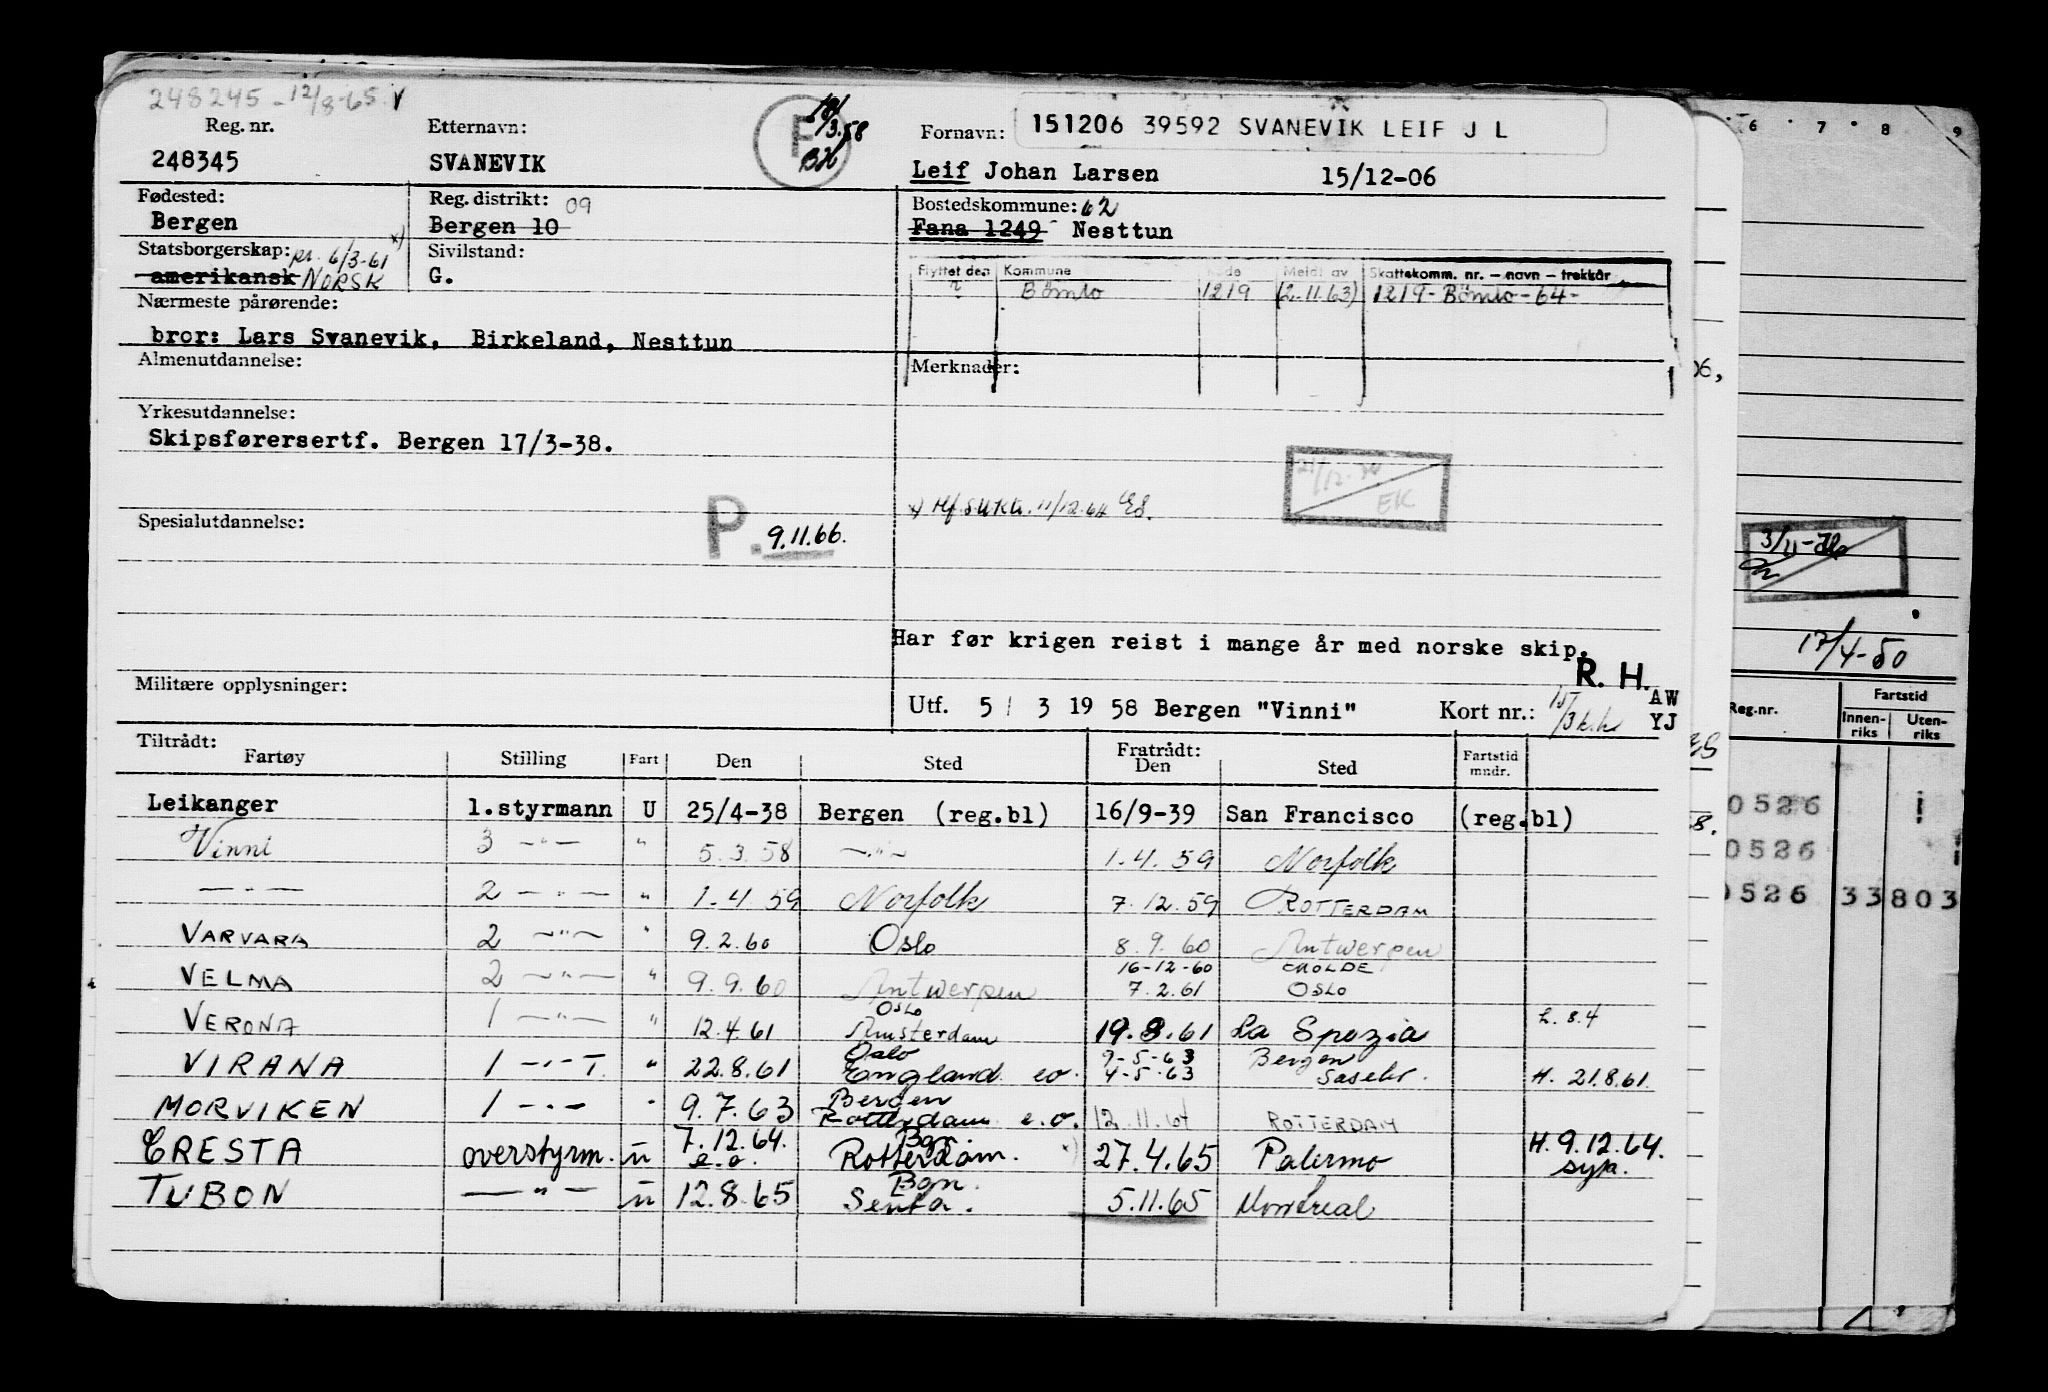 248245 - 12/8-65 V
Reg. nr. Etternavn: Fornavn: 151206 39592 SVANEVIK LEIF J L
F 3.58
248345 SVANEVIK Leif Johan Larsen 15/12-06
Fødested: Reg. distrikt: 09 Bostedskommune: 62
Bergen Bergen 10 Fana 1249 Nesttun
Statsborgerskap: pr. 6/3-61 x) Sivilstand:
amerikansk NORSK G.
Flyttet den Kommune Kode Meldt av Skattekomm. nr. – navn – trekkår
? Bömlo 1219 (2.11.63) 1219 - Bömlo - 64 -
Nærmeste pårørende:
bror: Lars Svanevik, Birkeland, Nesttun
Almenutdannelse: Merknader:
Yrkesutdannelse:
Skipsførersertf. Bergen 17/3-38.
EK
x) 11/12.64 ES.
Spesialutdannelse: P. 9.11.66.
Har før krigen reist i mange år med norske skip.
R. H.
Militære opplysninger: AW
Utf. 5 / 3 19 58 Bergen "Vinni" Kort nr.: YJ
Tiltrådt: Fratrådt:
Fartøy Stilling Fart Den Sted Den Sted Fartstid mndr.
Leikanger 1.styrmann U 25/4-38 Bergen (reg.bl) 16/9-39 San Francisco (reg.bl)
Vinni 3 —"— " 5.3.58 —"— 1.4.59 Norfolk
—"— 2 —"— " 1.4 59 Norfolk 7.12.59 ROTTERDAM
VARVARA 2 —"— " 9.2.60 Oslo 8.9.60 Antwerpen
16-12-60 MOLDE
VELMA 2 —"— " 9.9.60 Antwerpen 7.2.61 OSLO
Oslo
VERONA 1 —"— " 12.4.61 Amsterdam 19.8.61 La Spezia L. 8.4
Oslo 9-5-63 Bergen
VIRANA 1 —"— T. " 22.8.61 England eo. 4-5-63 Sasebo. H. 21.8.61
Bergen
MORVIKEN 1 —"— " 9.7.63 Rotterdam e.o. 12.11.64 ROTTERDAM
7.12.64. Bgn.
CRESTA overstyrm. u e.o. Rotterdam. x) 27.4.65 Palermo H. 9.12.64. syk.
Bgn.
TUBON —"— u 12.8.65 5.11.65 Montreal
6 7 8 9
06,
17/4-50
Reg.nr. Fartstid
Innen-riks Uten-riks
0526
0526
0526 33803